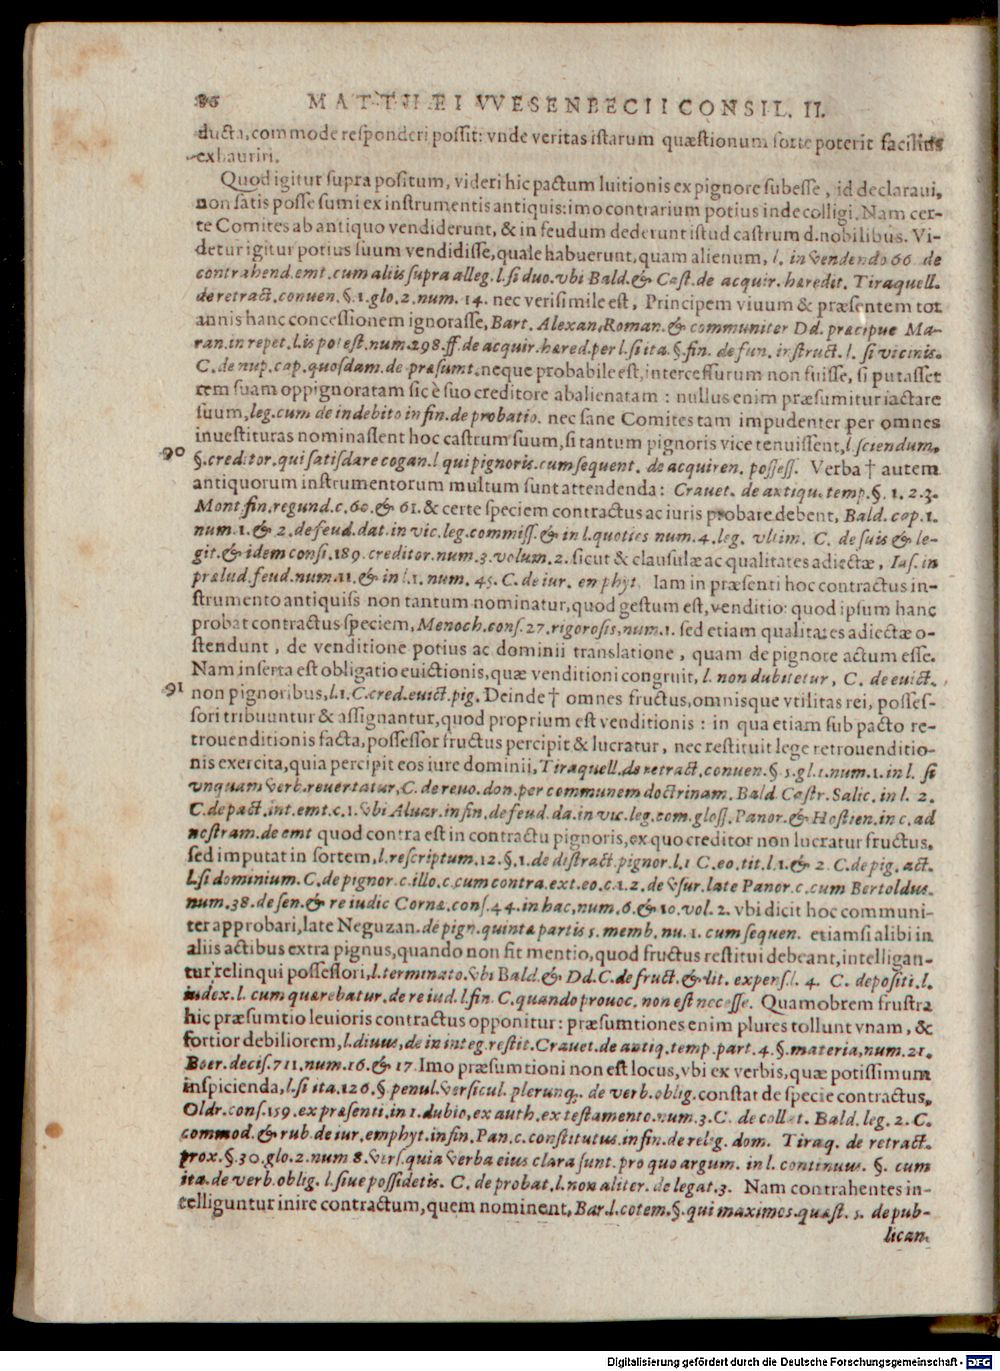 86 MATTHÆI VVESENBECII CONSIL. II.
ducta, commode responderi possit: vnde veritas istarum quæstionum forte poterit facilius
exhauriri.
Quod igitur supra positum, videri hic pactum luitionis ex pignore subesse, id declaraui,
non satis posse sumi ex instrumentis antiquis: imo contrarium potius inde colligi. Nam cer-
te Comites ab antiquo vendiderunt, & in feudum dederunt istud castrum d. nobilibus. Vi-
detur igitur potius suum vendidisse, quale habuerunt, quam alienum, l. in vendendo 66. de
contrahend. emt. cum aliis supra alleg. l. si duo. vbi Bald. & Cast. de acquir. hæredit. Tiraquell.
de retract. conuen. §. 1. glo. 2. num. 14. nec verisimile est, Principem viuum & præsentem tot
annis hanc concessionem ignorasse, Bart. Alexan. Roman. & communiter Dd. præcipue Ma-
ran. in repet. l. is potest. num. 298. ff. de acquir. hæred. per l. si ita. §. fin. de fun. instruct. l. si vicinis.
C. de nup. cap. quosdam. de præsumt. neque probabile est, intercessurum non fuisse, si putasset
rem suam oppignoratam sic è suo creditore abalienatam: nullus enim præsumitur iactare
suum, leg. cum de indebito in fin. de probatio. nec sane Comites tam impudenter per omnes
inuestituras nominassent hoc castrum suum, si tantum pignoris vice tenuissent, l. sciendum.
90 §. creditor. qui satisdare cogan. l qui pignoris. cum sequent. de acquiren. possess. Verba † autem
antiquorum instrumentorum multum sunt attendenda: Crauet. de antiqu. temp. §. 1. 2. 3.
Mont. fin. regund. c. 60. & 61. & certe speciem contractus ac iuris probare debent, Bald. cap. 1.
num. 1. & 2. de feud. dat. in vic. leg. commiss. & in l. quoties num. 4. leg. vltim. C. de suis & le-
git. & idem consi. 189. creditor. num. 3. volum. 2. sicut & clausulæ ac qualitates adiectæ, Ias. in
prælud. feud. num. 11. & in l. 1. num. 45. C. de iur. emphyt. Iam in præsenti hoc contractus in-
strumento antiquiss non tantum nominatur, quod gestum est, venditio: quod ipsum hanc
probat contractus speciem, Menoch. cons. 27. rigorosis, num. 1. sed etiam qualitates adiectæ o-
stendunt, de venditione potius ac dominii translatione, quam de pignore actum esse.
Nam inserta est obligatio euictionis, quæ venditioni congruit, l. non dubitetur, C. de euict.
91 non pignoribus, l. 1. C. cred. euict. pig. Deinde † omnes fructus, omnisque vtilitas rei, posses-
sori tribuuntur & assignantur, quod proprium est venditionis: in qua etiam sub pacto re-
trouenditionis facta, possessor fructus percipit & lucratur, nec restituit lege retrouenditio-
nis exercita, quia percipit eos iure dominii, Tiraquell. de retract. conuen. §. 5. gl. 1. num. 1. in l. si
vnquam verb. reuertatur, C. de reuo. don. per communem doctrinam. Bald. Castr. Salic. in l. 2.
C. de pact. int. emt. c. 1. vbi Aluar. in fin. de feud. da. in vic. leg. com. gloss. Panor. & Hostien. in c. ad
nostram. de emt quod contra est in contractu pignoris, ex quo creditor non lucratur fructus,
sed imputat in sortem, l. rescriptum. 12. §. 1. de distract. pignor. l. 1 C. eo. tit. l. 1. & 2 C. de pig. act.
l. si dominium. C. de pignor. c. illo. c. cum contra. ext. eo. c. 1. 2. de vsur. late Panor. c. cum Bertoldus.
num. 38. de sen. & re iudic Cornæ. cons. 44. in hac, num. 6. & 10. vol. 2. vbi dicit hoc communi-
ter approbari, late Neguzan. de pign. quinta partis 5. memb. nu. 1. cum sequen. etiamsi alibi in
aliis actibus extra pignus, quando non fit mentio, quod fructus restitui debeant, intelligan-
tur relinqui possessori, l. terminato. vbi Bald. & Dd. C. de fruct. & lit. expens. l. 4. C. depositi. l.
index. l. cum quærebatur. de re iud. l. fin. C. quando prouoc. non est necesse. Quamobrem frustra
hic præsumtio leuioris contractus opponitur: præsumtiones enim plures tollunt vnam, &
fortior debiliorem, l. diuus, de in integ. restit. Crauet. de antiq. temp. part. 4. §. materia, num. 21.
Boer. decis. 711. num. 16. & 17. Imo præsumtioni non est locus, vbi ex verbis, quæ potissimum
inspicienda, l. si ita. 126. §. penul. versicul. plerunq. de verb. oblig. constat de specie contractus,
Oldr. cons. 159. ex præsenti, in 1. dubio, ex auth. ex testamento. num. 3. C. de collat. Bald. leg. 2. C.
commod. & rub. de iur. emphyt. in fin. Pan. c. constitutus. in fin. de relig. dom. Tiraq. de retract.
prox. §. 30. glo. 2. num 8. vers. quia verba eius clara sunt. pro quo argum. in l. continuus. §. cum
ita. de verb. oblig. l. siue possidetis. C. de probat. l. non aliter. de legat. 3. Nam contrahentes in-
telliguntur inire contractum, quem nominent, Bar. l. cotem. §. qui maximos. quæst. 5. de pub-
lican.
Digitalisierung gefördert durch die Deutsche Forschungsgemeinschaft - DFG